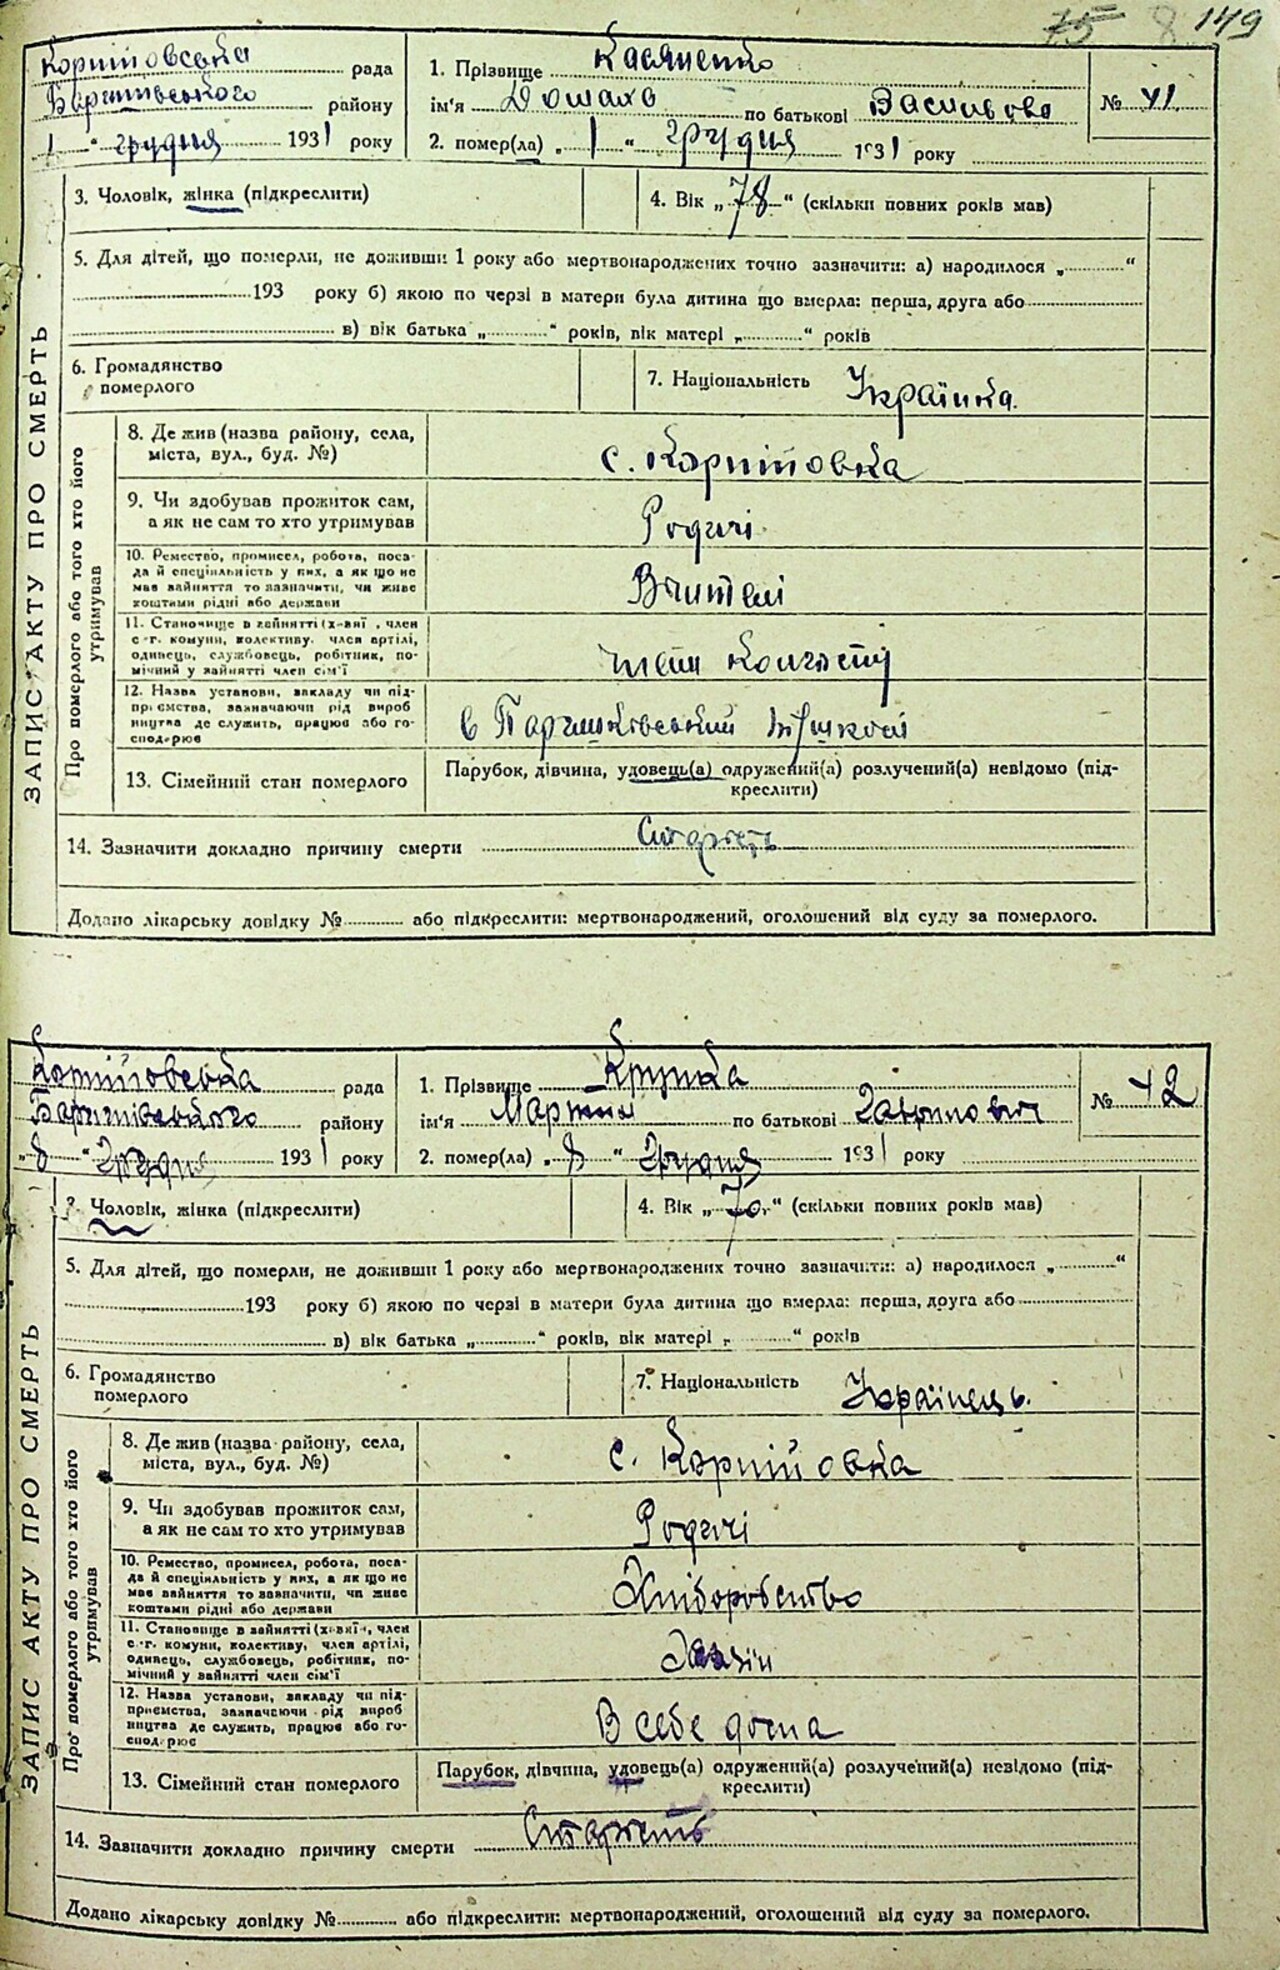 75 8 149
Корпіловська рада
Баришівського району
„1“ грудня 1931 року
1. Прізвище Касяненко
ім'я Домаха по батькові Васильова
2. помер(ла) „1“ грудня 1931 року
№ 41
3. Чоловік, жінка (підкреслити)
4. Вік „78“ (скільки повних років мав)
5. Для дітей, що померли, не доживши 1 року або мертвонароджених точно зазначити: а) народилося „ “
193 року б) якою по черзі в матери була дитина що вмерла: перша, друга або
в) вік батька „ “ років, вік матері „ “ років
6. Громадянство
померлого
7. Національність Українка.
ЗАПИС АКТУ ПРО СМЕРТЬ
Про померлого або того хто його
утримував
8. Де жив (назва району, села,
міста, вул., буд. №)
с. Корпіловка
9. Чи здобував прожиток сам,
а як не сам то хто утримував
Родичі
10. Ремество, промисел, робота, поса-
да й спеціільність у них, а як що не
мав вайняття то зазначити, чи живе
коштами рідні або держави
Вчителі
11. Становище в зайнятті (х-вні, член
с-г. комуни, колективу, член артілі,
одинець, службовець, робітник, по-
мічний у зайнятті член сім'ї
12. Назва установи, закладу чи під-
приємства, зазначаючи рід вироб
ництва де служить, працює або го-
сподарює
13. Сімейний стан померлого
Парубок, дівчина, удовець(а) одружений(а) розлучений(а) невідомо (під-
креслити)
14. Зазначити докладно причину смерти Старість
Додано лікарську довідку № або підкреслити: мертвонароджений, оголошений від суду за померлого.
Корпіловська рада
Баришівського району
„8“ Грудня 1931 року
1. Прізвище Крупка
ім'я Мартин по батькові Гаврилович
2. помер(ла) „8“ Грудня 1931 року
№ 42
3. Чоловік, жінка (підкреслити)
4. Вік „70“ (скільки повних років мав)
5. Для дітей, що померли, не доживши 1 року або мертвонароджених точно зазначити: а) народилося „ “
193 року б) якою по черзі в матери була дитина що вмерла: перша, друга або
в) вік батька „ “ років, вік матері „ “ років
6. Громадянство
померлого
7. Національність Українець.
ЗАПИС АКТУ ПРО СМЕРТЬ
Про померлого або того хто його
утримував
8. Де жив (назва району, села,
міста, вул., буд. №)
с. Корпіловка
9. Чи здобував прожиток сам,
а як не сам то хто утримував
Родичі
10. Ремество, промисел, робота, поса-
да й спеціільність у них, а як що не
мав вайняття то зазначити, чи живе
коштами рідні або держави
Хліборобство
11. Становище в зайнятті (х-вні, член
с-г. комуни, колективу, член артілі,
одинець, службовець, робітник, по-
мічний у зайнятті член сім'ї
12. Назва установи, закладу чи під-
приємства, зазначаючи рід вироб
ництва де служить, працює або го-
сподарює
В себе дома
13. Сімейний стан померлого
Парубок, дівчина, удовець(а) одружений(а) розлучений(а) невідомо (під-
креслити)
14. Зазначити докладно причину смерти Старість
Додано лікарську довідку № або підкреслити: мертвонароджений, оголошений від суду за померлого.